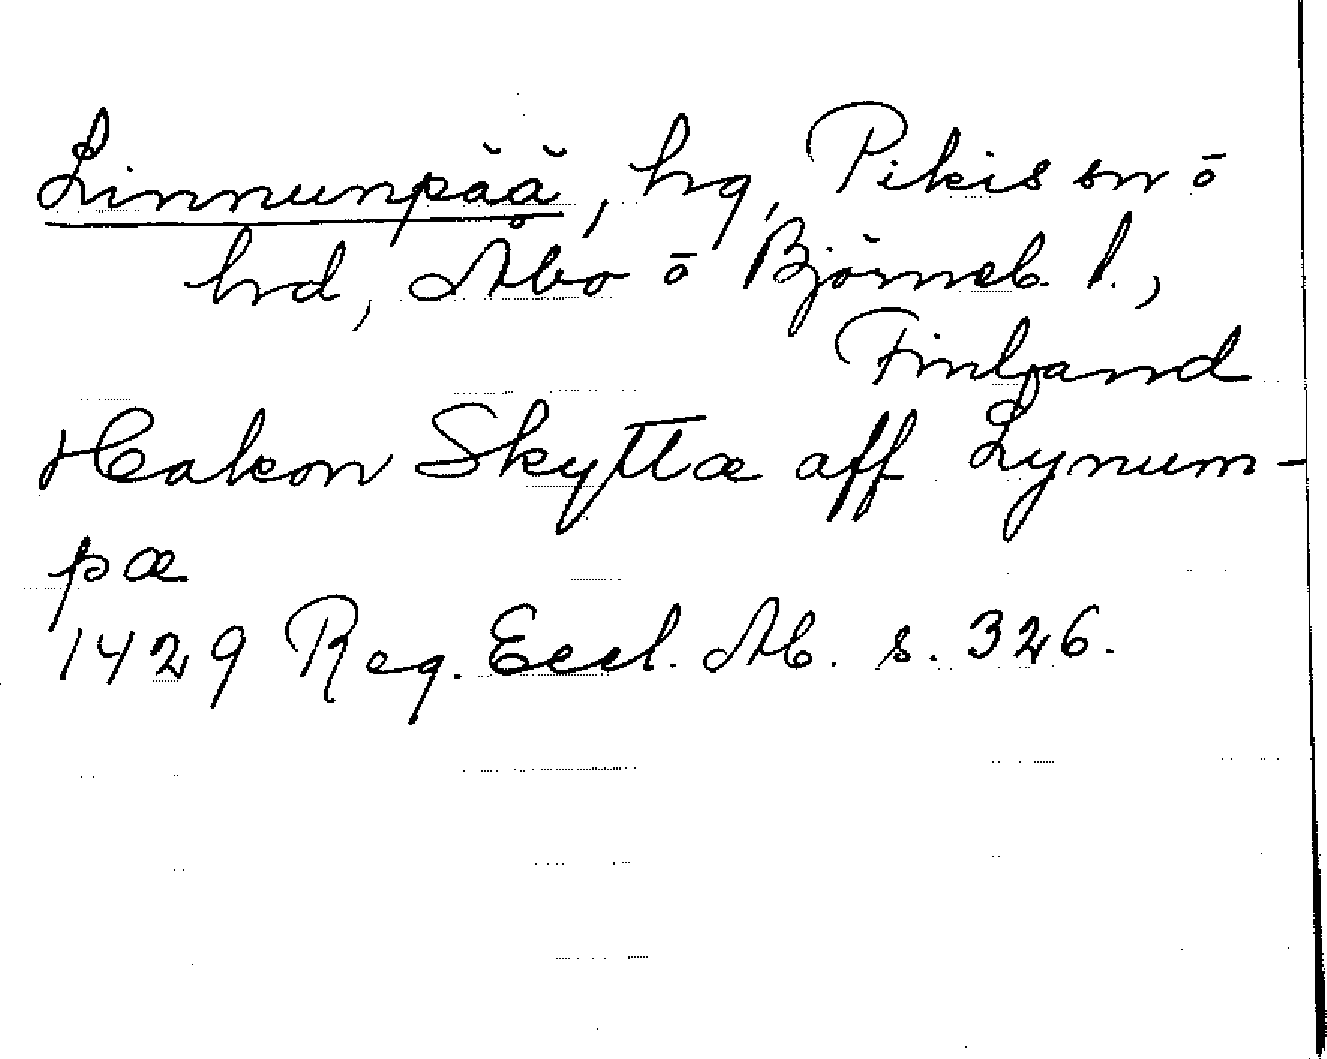 Linnunpää, hg, Pikis sn o
hd, Åbo o Björneb. l.,
Finland
Hakon Skyttæ aff Lynum-
pæ
1429 Reg. Eccl. Ab. s. 326.